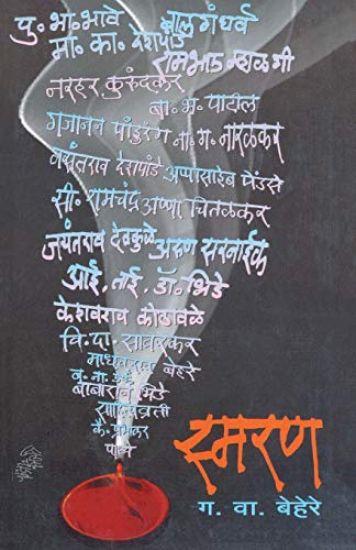 पु. भा. भावे
बालगंधर्व
मा. का. देशपांडे
रामभाऊ म्हाळगी
नरहर कुरुंदकर
बा. भ. पाटील
गजानन पांडुरंग
ना. ग. नारळकर
वसंतराव देशपांडे
अप्पासाहेब पेंडसे
सी. रामचंद्र
अण्णा चितळकर
जयंतराव देवकुळे
अरुण सरनाईक
आई. ताई. डॉ. भिडे
केशवराव कोठावळे
वि. दा. सावरकर
माधवराव बेहेरे
बाबाराव भिडे
स्मरण
ग. वा. बेहेरे